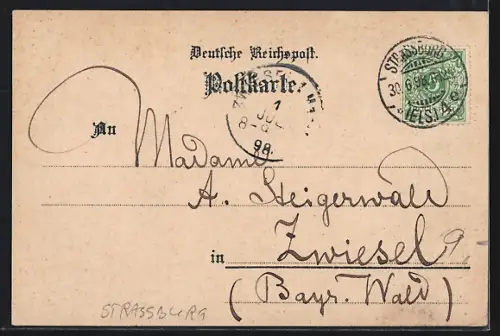 Deutsche Reichspost.
Postkarte.
STRASSBURG
30.6.98
(ELS.) 4 e
1
JUL
8-9
98
An
Madame
A. Steigerwald
in Zwiesel
(Bayr. Wald)
9,-
STRASSBURG